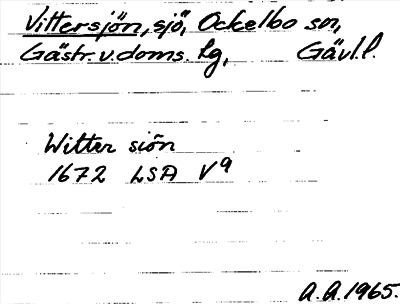 Vittersjön, sjö, Ockelbo sn,
Gästr. v. doms. lg, Gävl. l.
Witter siön
1672 LSA V9
A.A. 1965.